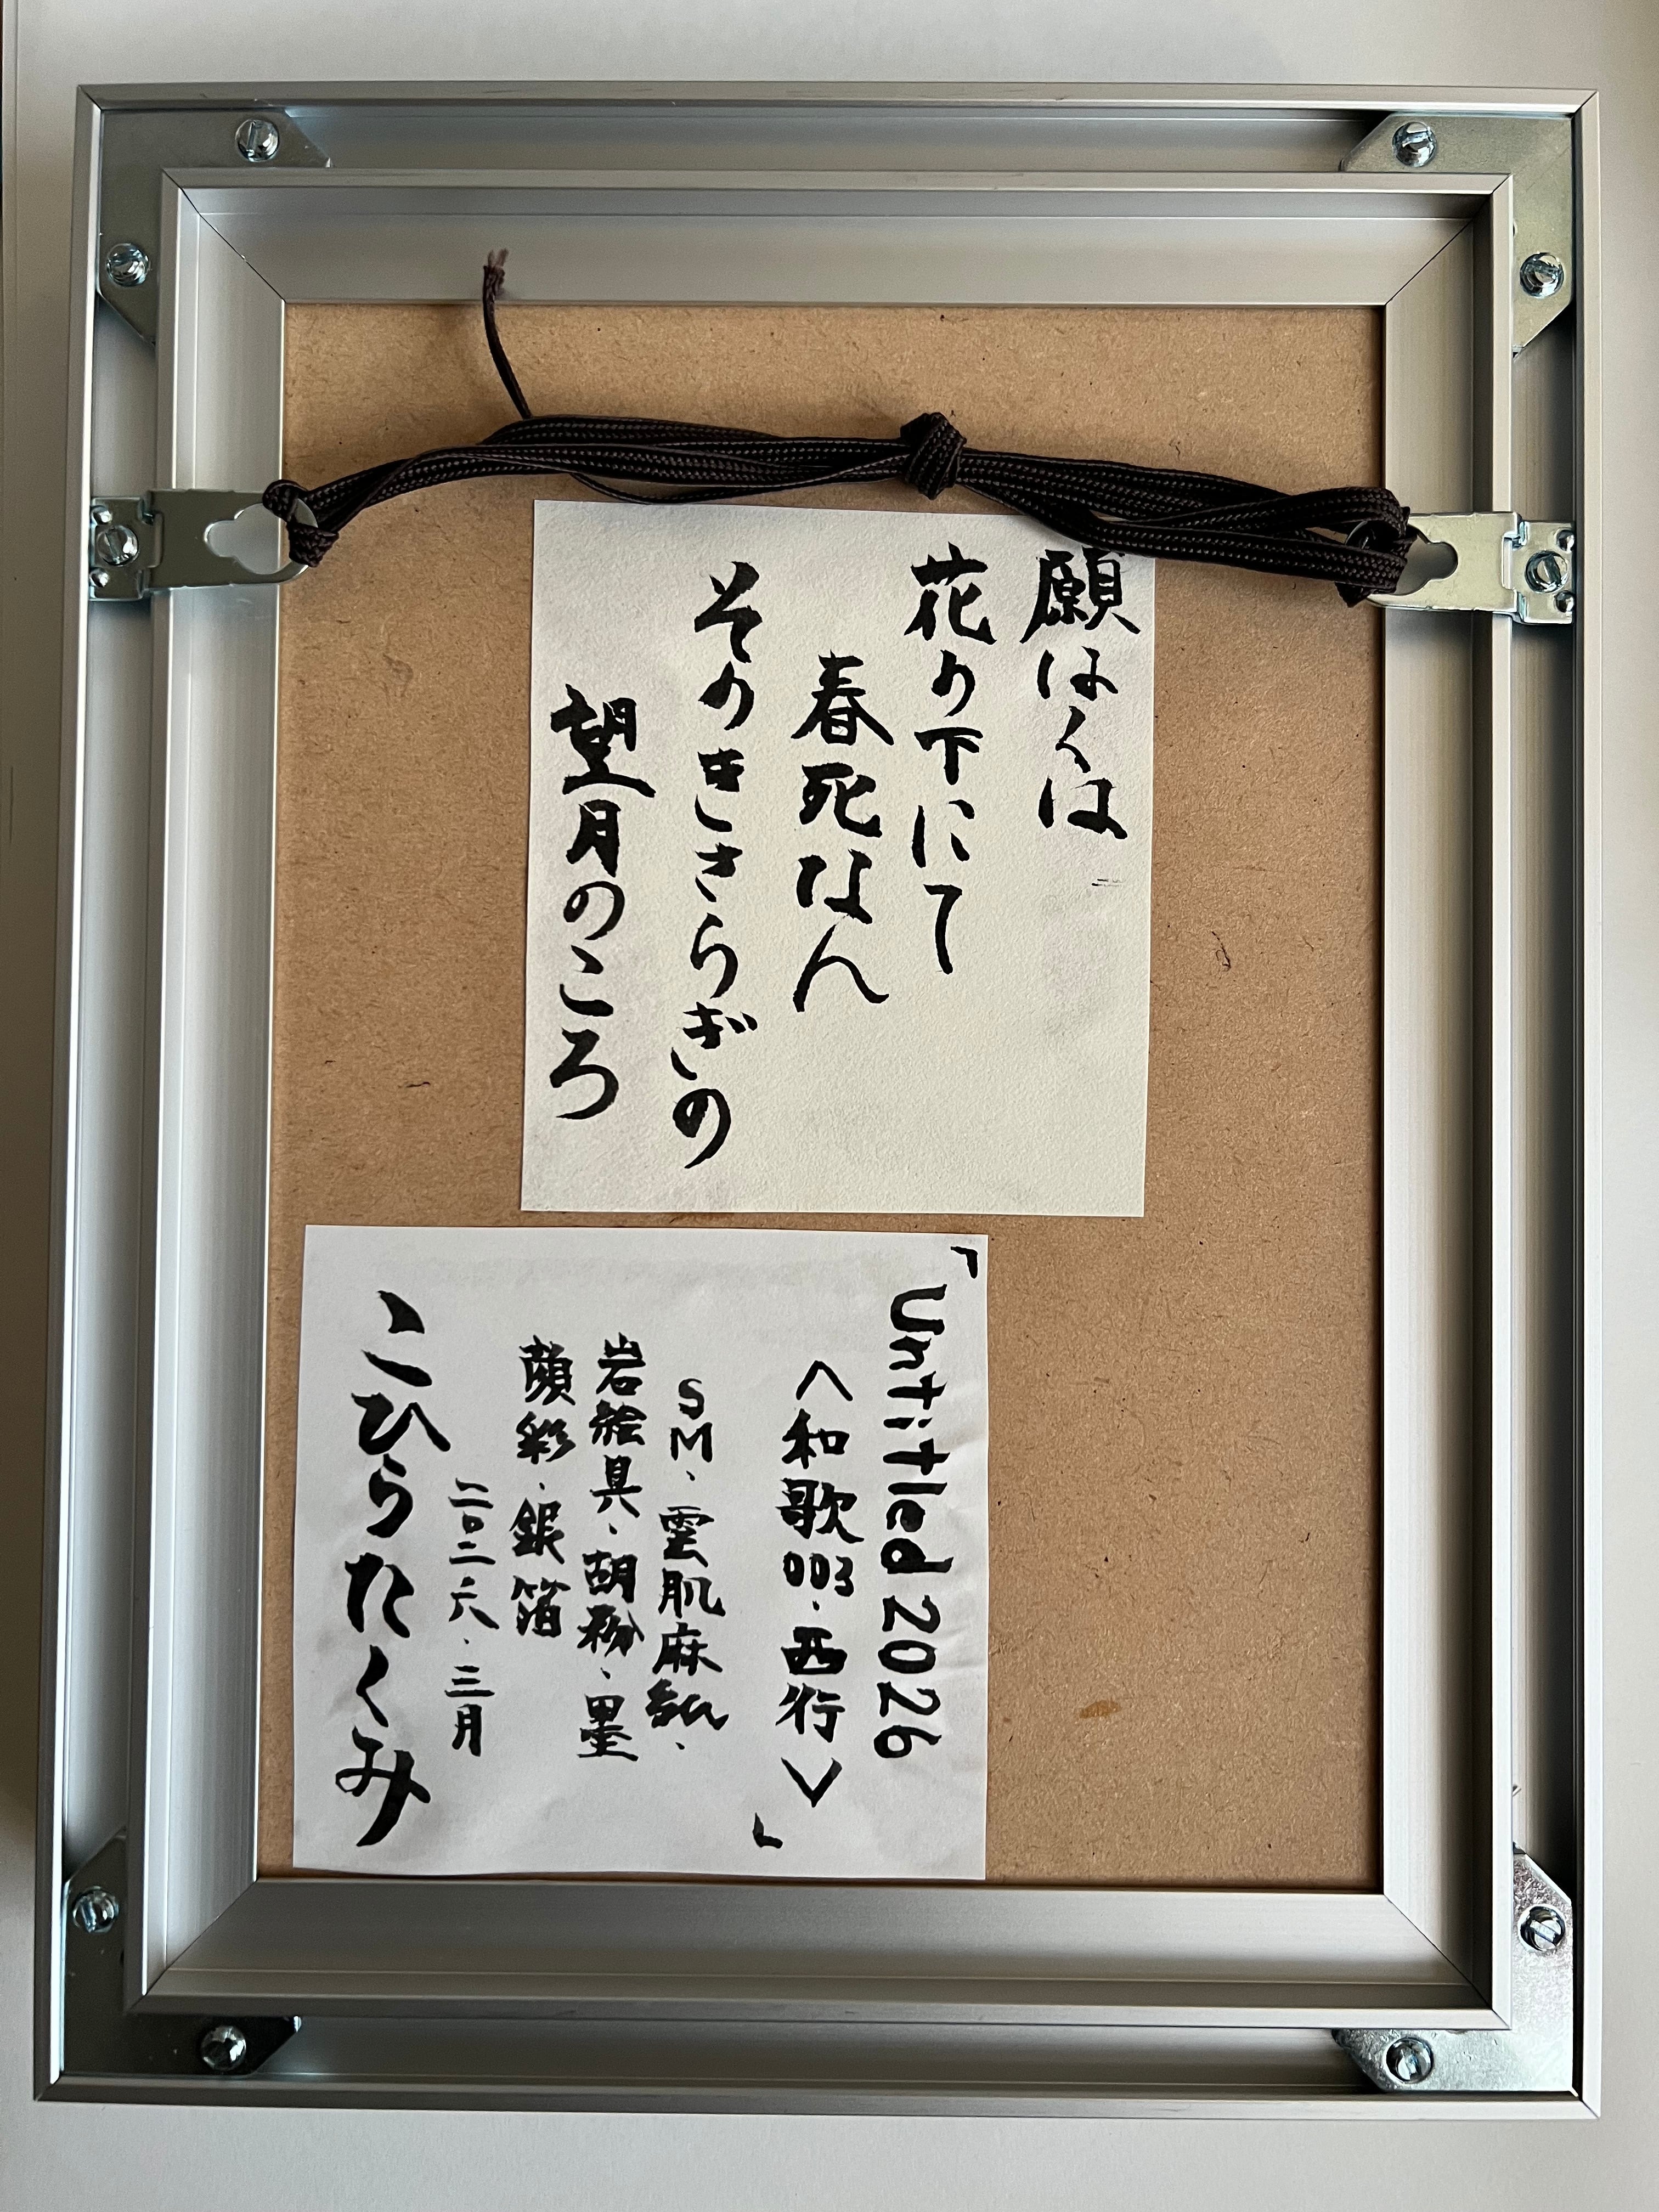 願はくは
花の下にて
春死なん
そのきさらぎの
望月のころ
「Untitled 2026
〈和歌003・西行〉」
SM、雲肌麻紙、
岩絵具、胡粉、墨
顔彩、銀箔
二〇二六、三月
こひらたくみ